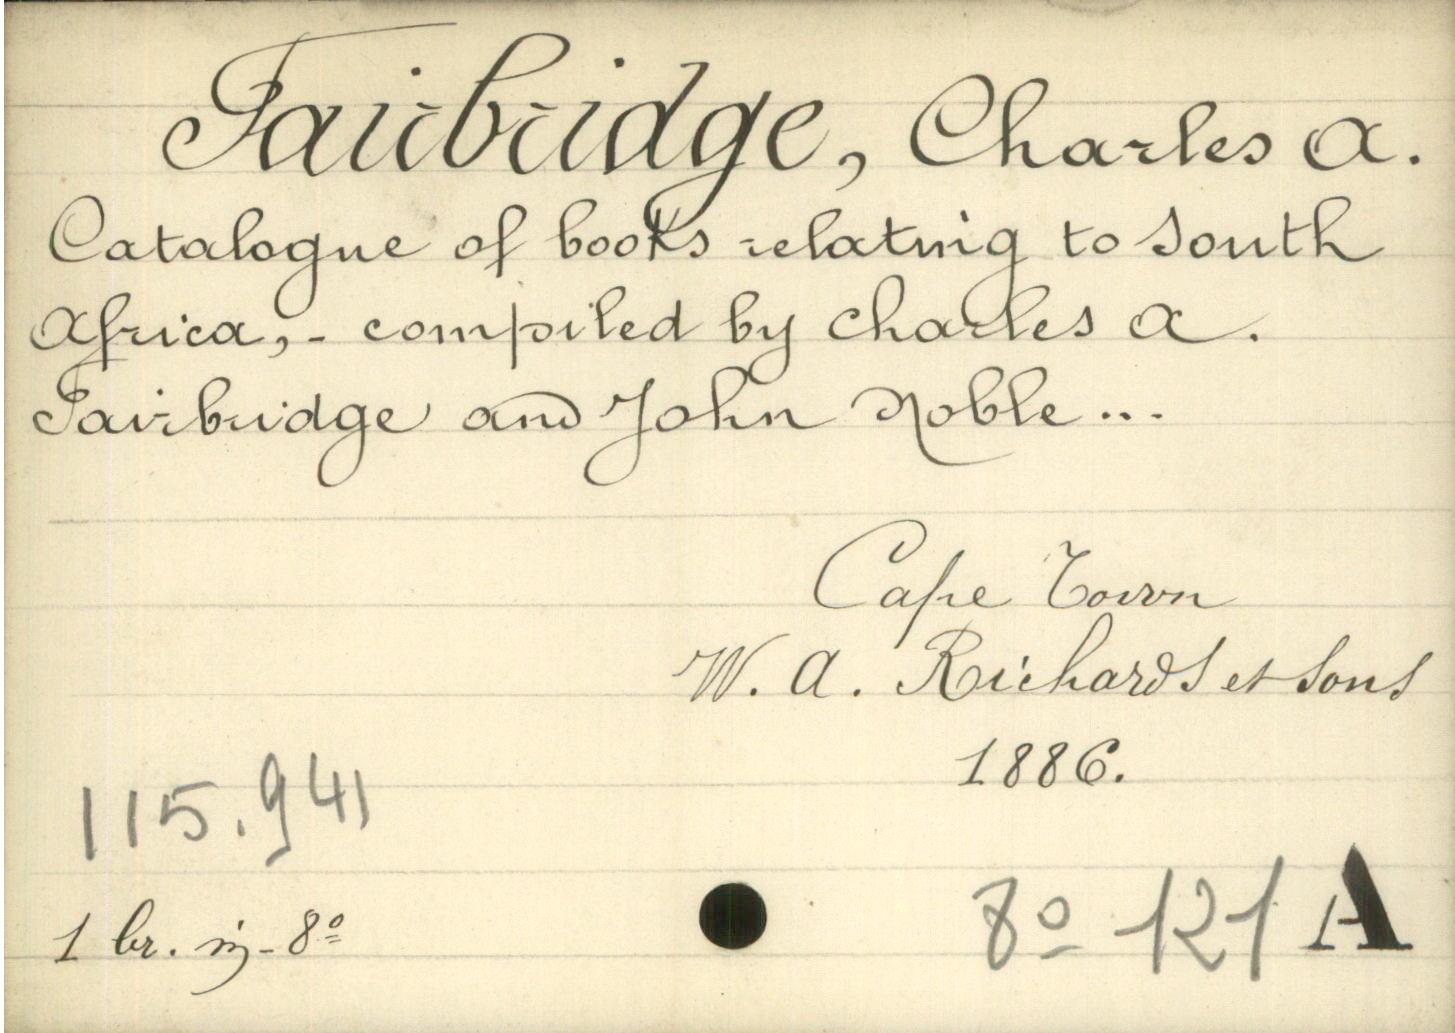 Fairbridge, Charles A.
Catalogue of books relating to South
Africa, - compiled by Charles A.
Fairbridge and John Noble ...
Cape Town
W. A. Richards et Sons
1886.
115.941
1 br. in-8º
8º 121 A